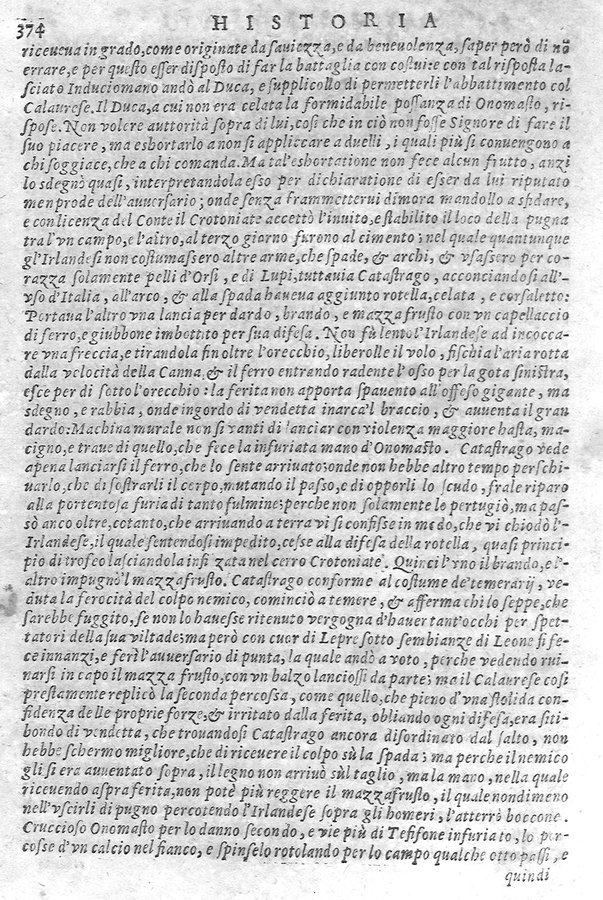 374 HISTORIA
riceveua in grado, come originate da sauiezza, e da beneuolenza, saper però di nō
errare, e per questo esser disposto di far la battaglia con costui: e con tal risposta la-
sciato Induciomano andò al Duca, e supplicollo di permetterli l'abbattimento col
Calaurese. Il Duca, a cui non era celata la formidabile possanza di Onomasto, ri-
spose. Non volere auttorità sopra di lui, così che in ciò non fosse Signore di fare il
suo piacere, ma esbortarlo a non si appliccare a duelli, i quali più si conuengono a
chi soggiace, che a chi comanda. Ma tal'esbortatione non fece alcun frutto, anzi
lo sdegnò quasi, interpretandola esso per dichiaratione di esser da lui riputato
men prode dell'auuersario; onde senza frammetterui dimora mandollo a sfidare,
e con licenza del Conte il Crotoniate accettò l'inuito, e stabilito il loco della pugna
tra l'vn campo, e l'altro, al terzo giorno furono al cimento; nel quale quantunque
gl'Irlandesi non costumassero altre arme, che spade, & archi, & vsassero per co-
razza solamente pelli d'Orsi, e di Lupi, tuttauia Catastrago, acconciandosi all'-
vso d'Italia, all'arco, & alla spada haueua aggiunto rotella, celata, e corsaletto:
Portaua l'altro vna lancia per dardo, brando, e mazzafrusto con vn capellaccio
di ferro, e giubbone imbottito per sua difesa. Non fù lento l'Irlandese ad incocca-
re vna freccia, e tirandola fin oltre l'orecchio, liberolle il volo, fischia l'aria rotta
dalla velocità della Canna & il ferro entrando radente l'osso per la gota sinistra,
esce per di sotto l'orecchio: la ferita non apporta spauento all'offeso gigante, ma
sdegno, e rabbia, onde ingordo di vendetta inarca'l braccio, & auuenta il gran
dardo: Machina murale non si vanti di lanciar con violenza maggiore hasta, ma-
cigno, e traue di quello, che fece la infuriata mano d'Onomasto. Catastrago vede
apena lanciarsi il ferro, che lo sente arriuato; onde non hebbe altro tempo per schi-
uarlo, che di sostrarli il corpo, mutando il passo, e di opporli lo scudo, frale riparo
alla portentosa furia di tanto fulmine; perche non solamente lo pertugiò, ma pas-
sò anco oltre, cotanto, che arriuando a terra vi si confisse in modo, che vi chiodò l'-
Irlandese, il quale sentendosi impedito, cesse alla difesa della rotella, quasi princi-
pio di trofeo lasciandola infilzata nel cerro Crotoniate. Quinci l'vno il brando, e l'-
altro impugnò'l mazzafrusto. Catastrago conforme al costume de'temerarij, ve-
duta la ferocità del colpo nemico, cominciò a temere, & afferma chi lo seppe, che
sarebbe fuggito, se non lo hauesse ritenuto vergogna d'hauer tant'occhi per spet-
tatori della sua viltade; ma però con cuor di Lepre sotto sembianze di Leone si fe-
ce innanzi, e ferì l'auuersario di punta, la quale andò a voto, perche vedendo rui-
narsi in capo il mazza frusto, con vn balzo lanciossi da parte; ma il Calaurese così
prestamente replicò la seconda percossa, come quello, che pieno d'vna stolida con-
fidenza delle proprie forze, & irritato dalla ferita, obliando ogni difesa, era siti-
bondo di vendetta, che trouandosi Catastrago ancora disordinato dal salto, non
hebbe schermo migliore, che di riceuere il colpo sù la spada; ma perche il nemico
gli si era auuentato sopra, il legno non arriuò sùl taglio, ma la mano, nella quale
riceuendo aspra ferita, non potè più reggere il mazzafrusto, il quale nondimeno
nell'vscirli di pugno percotendo l'Irlandese sopra gli homeri, l'atterrò boccone.
Cruccioso Onomasto per lo danno secondo, e vie più di Tesifone infuriato, lo per-
cosse d'vn calcio nel fianco, e spinselo rotolando per lo campo qualche otto passi, e
quindi